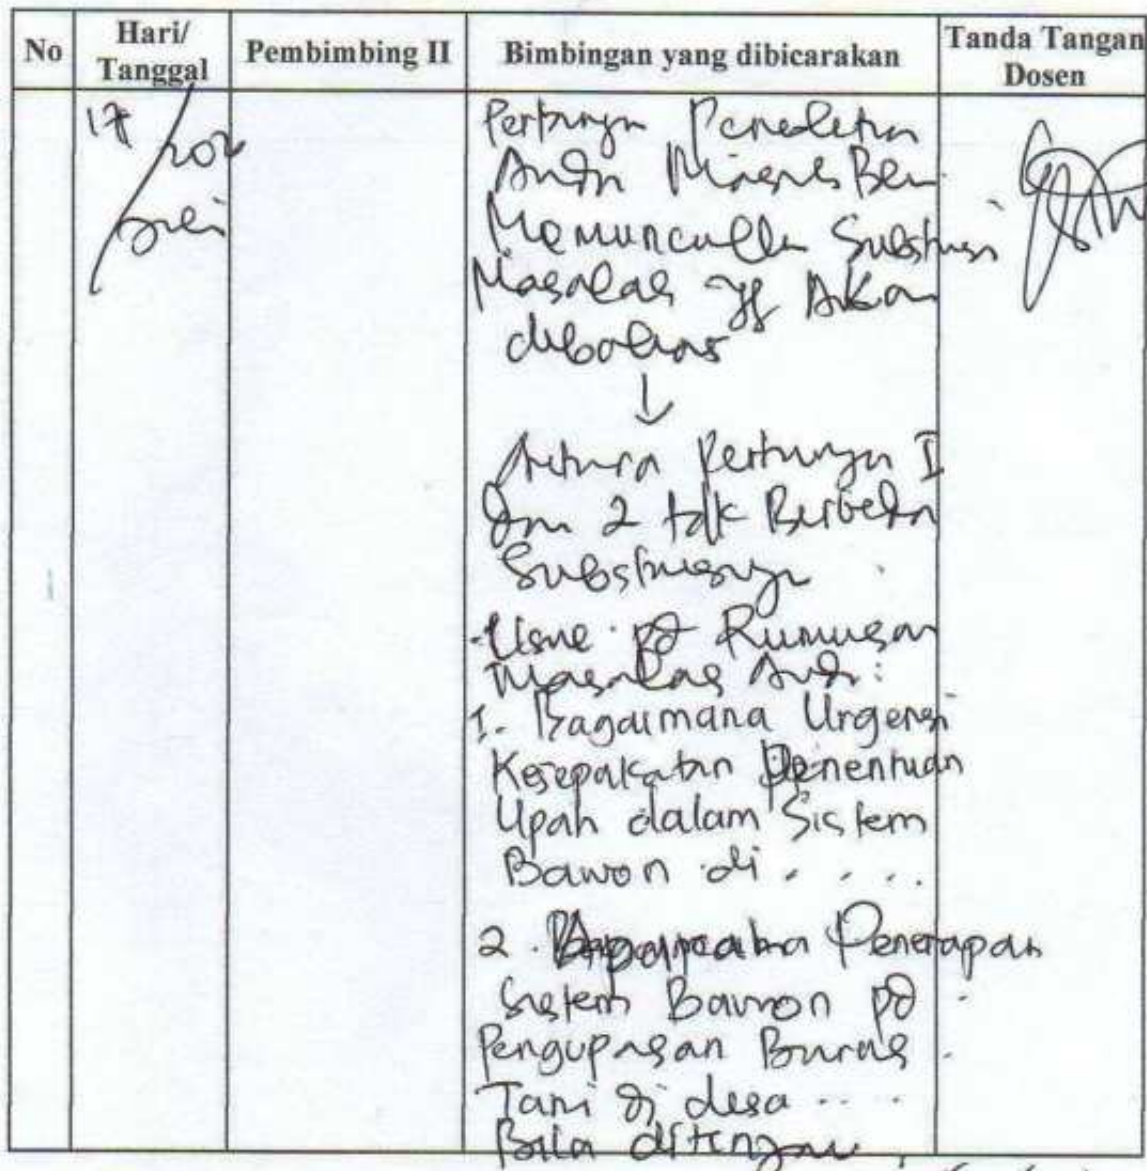 No
Hari/
Tanggal
Pembimbing II
Bimbingan yang dibicarakan
Tanda Tangan
Dosen
17
Juli
Pertanyn Penelitin
Andn
Memuncullkn Substnsi
Masalah yg Akan
dibahas
↓
Antara Pertanyn I
Dan 2 tdk Berbeda
Substnsinya
pd Rumusan
Masalah Anda:
1. Bagaimana Urgensi
Kesepakatan Penentuan
Upah dalam Sistem
Bawon di . . . .
2. Penerapan
Sistem Bawon pd
Pengupasan Buruh
Tani di desa ....
Bila ditinjau